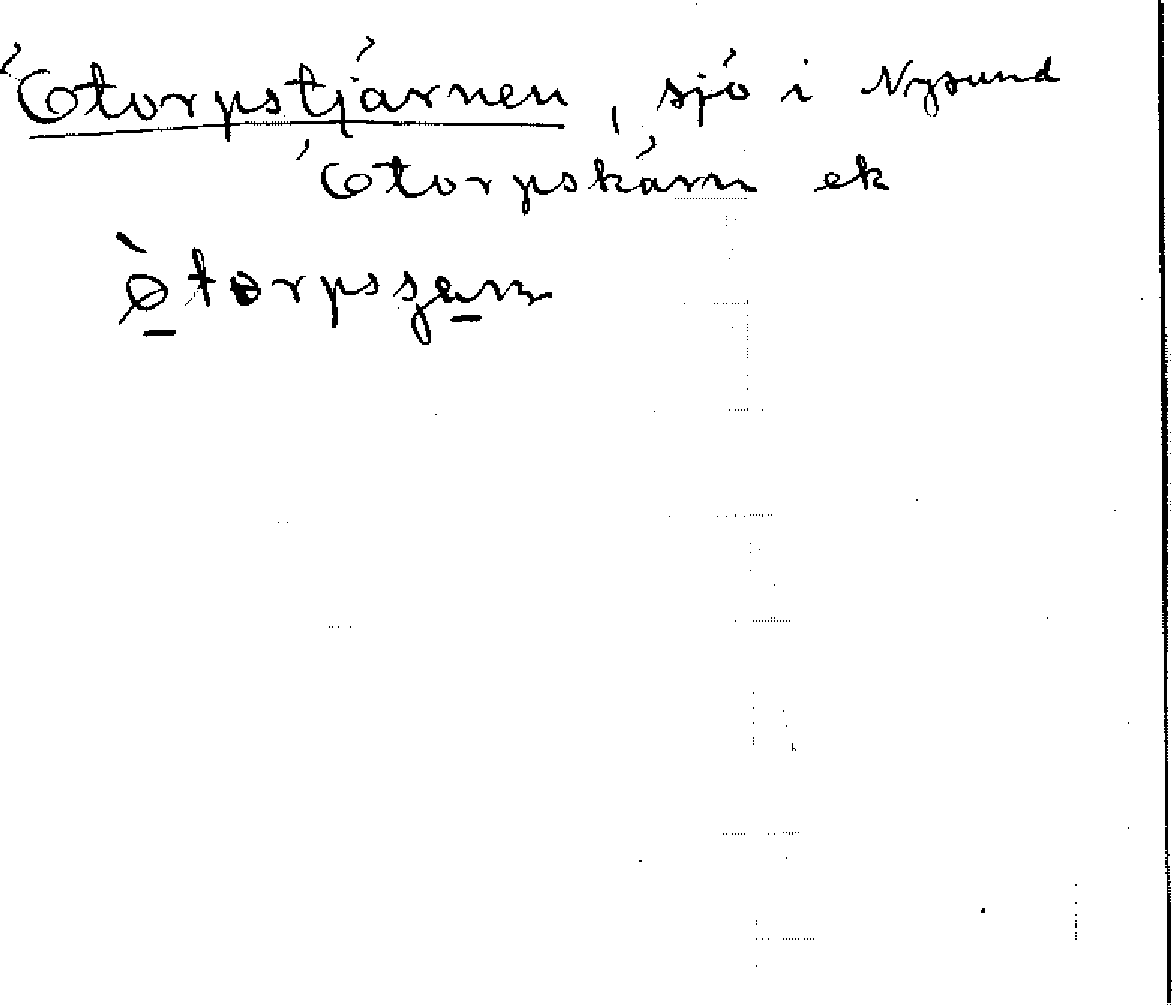 Ötorpstjärnen, sjö i Nysund
Ötorpskärn ek
ø̀torpsʒæɳ